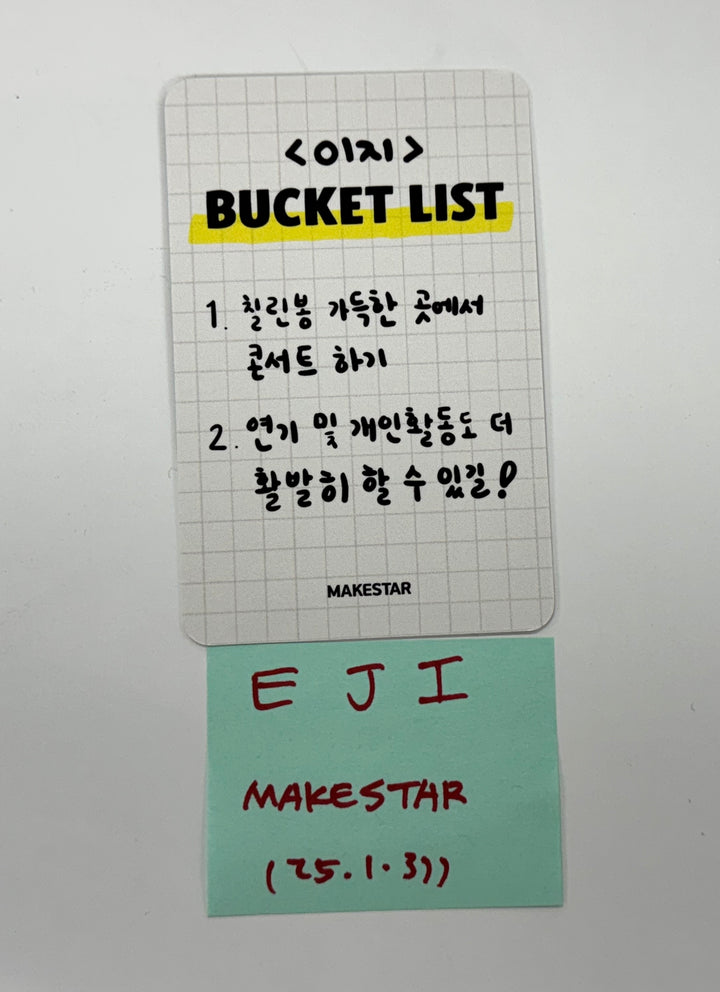 <이지>
BUCKET LIST
1. 칠린봉 가득한 곳에서
콘서트 하기
2. 연기 및 개인활동도 더
활발히 할 수 있길!
MAKESTAR
EJI
MAKESTAR
(25.1.3))